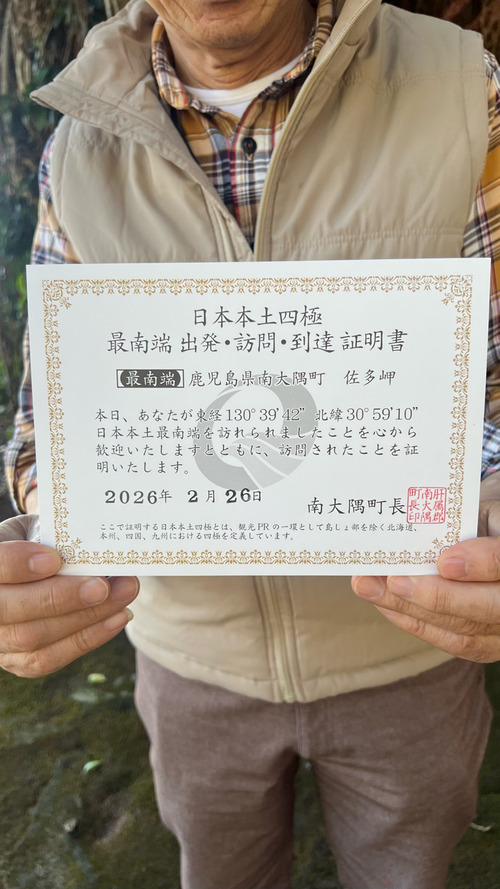 日本本土四極
最南端 出発・訪問・到達 証明書
【最南端】鹿児島県南大隅町 佐多岬
本日、あなたが東経130°39'42" 北緯30°59'10"
日本本土最南端を訪れられましたことを心から
歓迎いたしますとともに、訪問されたことを証
明いたします。
2026年 2月26日
南大隅町長
肝属郡
南大隅
町長印
ここで証明する日本本土四極とは、観光PRの一環として島しょ部を除く北海道、
本州、四国、九州における四極を定義しています。